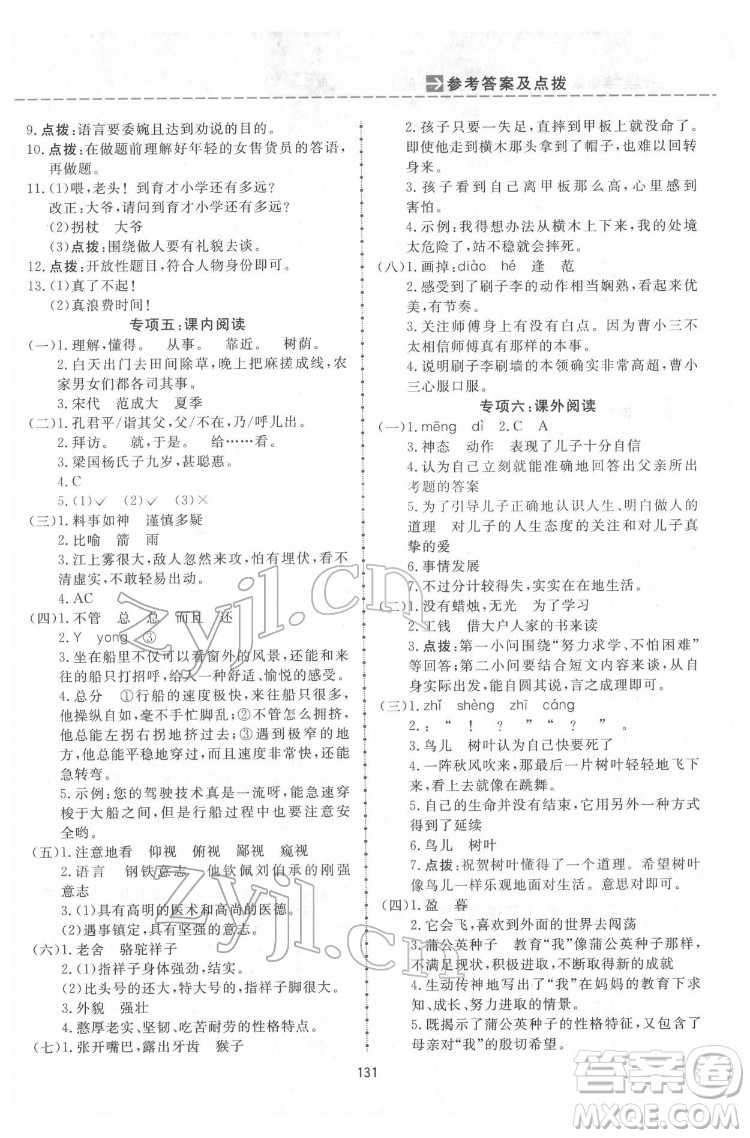 参考答案及点拨
9. 点拨:语言要委婉且达到劝说的目的。
10. 点拨:在做题前理解好年轻的女售货员的答语,
再做题。
11. (1)喂,老头!到育才小学还有多远?
改正:大爷,请问到育才小学还有多远?
(2)拐杖 大爷
(3)点拨:围绕做人要有礼貌去谈。
12. 点拨:开放性题目,符合人物身份即可。
13. (1)真了不起!
(2)真浪费时间!
专项五:课内阅读
(一)1. 理解,懂得。 从事。 靠近。 树荫。
2. 白天出门去田间除草,晚上回家搓麻线,农
家男女们都各司其事。
3. 宋代 范成大 夏季
(二)1. 孔君平/诣其父,父/不在,乃/呼儿出。
2. 拜访。 就。 给……看。
3. 梁国杨氏子九岁,甚聪惠。
4. C
5. (1)✓ (2)✓ (3)×
(三)1. 料事如神 谨慎多疑
2. 比喻 箭 雨
3. 江上雾很大,敌人忽然来攻,怕有埋伏,看不
清虚实,不敢轻易出动。
4. AC
(四)1. 不管 总 总 而且 还
2. Y yong ③
3. 坐在船里不仅可以看窗外的风景,还可以和
来往的船只打招呼,一种舒适、愉悦的感受。
4. 总分 ①行船的速度极快,来往船只很多,
他操纵自如,毫不手忙脚乱;②不管怎么拥挤,
他能左拐右拐地挤过去;③遇到极窄的地方,
他总能平稳地穿过去,而且速度非常快,还能
急转弯。
5. 示例:您的驾驶技术真是一流呀,能急速穿
梭于大船之间,但行船过程中也要注意安全
哟。
(五)1. 注意地看 仰视 俯视 鄙视 窥视
2. 语言 钢铁意志 他钦佩刘伯承的刚强
意志
3. (1)具有高明的医术和高尚的医德。
(2)遇事镇定,有坚强的意志。
(六)1. 老舍 骆驼祥子
2. (1)指祥子身体强劲、结实。
(2)比头号的还大,特别大。
3. 外貌 强壮
4. 憨厚老实、坚韧、吃苦耐劳的性格特点。
(七)1. 张开嘴巴,露出牙齿 猴子
2. 孩子只要一失足,直摔到甲板上就没命了。
即使他走到横木那头拿到了帽子,也难以回
转身来。
3. 孩子看到自己离甲板那么高,心里感到
害怕。
4. 示例:我得想办法从横木上下来,我的处境
太危险了,站不稳就会摔死。
(八)1. 画掉:diào hé 逢 范
2. 感受到了刷子李的动作相当娴熟,看得出很
有节奏。
3. 关注师傅身上有没有白点。因为曹小三不
太相信师傅真有那样的本事。
4. 说明刷子李刷墙的本领确实非常高超,曹小
三心服口服。
专项六:课外阅读
(一)1. mēng dì 2. C A
3. 神态 动作 表现了儿子十分自信
4. 认为自己立刻就能准确地回答出父亲所出
考题的答案
5. 为了引导儿子正确地认识人生、明白做人的
道理 对儿子的人生态度的关注和对儿子真
挚的爱
6. 事情发展
7. 不过分计较得失,实实在在地生活。
(二)1. 没有蜡烛,无光 为了学习
2. 工钱 借大户人家的书来读
3. 点拨:第一小问围绕“努力求学、不怕困难”
等回答;第二小问要结合短文内容来谈,从自
身实际出发,说出自己的感想,言之成理即可。
(三)1. zhǐ shèng zhī cáng
2. : “ ! ? ” “ ? ” 。
3. 鸟儿 树叶以为自己快要死了
4. 一阵秋风吹来,那最后一片树叶轻轻地飞下
来,好像在跳舞。
5. 自己的生命并没有结束,它用另一种方式
得到了延续
6. 鸟儿 树叶
7. 点拨:祝贺树叶懂得了一个道理。希望树叶
像鸟儿一样乐观地面对生活。意思对即可。
(四)1. 盈 暮
2. 它会飞,喜欢到外面的世界去闯荡
3. 蒲公英种子 教育“我”像蒲公英种子那样,
不满足于现实,不断进取,去实现美好未来
4. 生动传神地写出了“我”在妈妈的教育下求
知、成长、努力进取的情景。
5. 既揭示了蒲公英种子的性格特征,又表达了
母亲对“我”的殷切希望。
131
zyjl.cn
zyjl.cn
答案圈
MXQE.COM